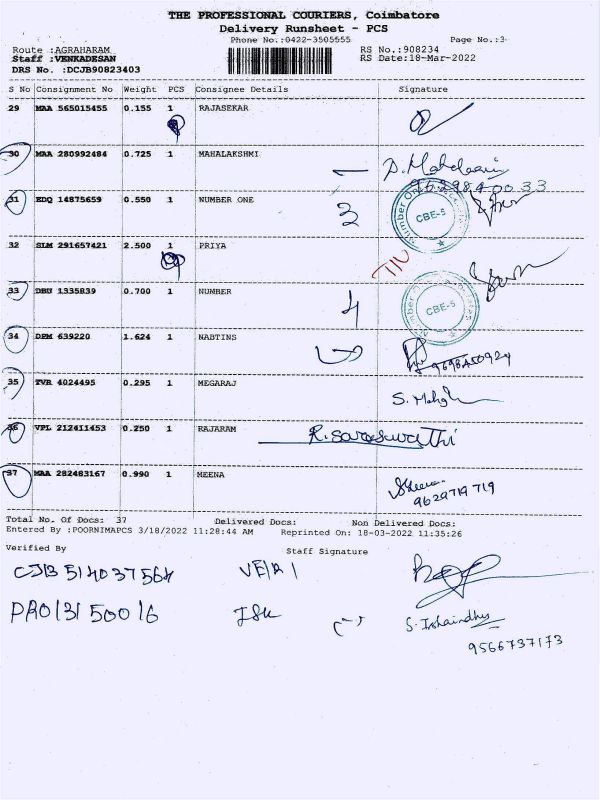 THE PROFESSIONAL COURIERS, Coimbatore
Delivery Runsheet - PCS
Phone No.:0422-3505555 Page No.:3
Route :AGRAHARAM RS No.:908234
Staff :VENKADESAN RS Date:18-Mar-2022
DRS No. :DCJB90823403
S No Consignment No Weight PCS Consignee Details Signature
29 MAA 565015455 0.155 1 RAJASEKAR
30 MAA 280992484 0.725 1 MAHALAKSHMI
31 EDQ 14875659 0.550 1 NUMBER ONE 3 CBE-5
32 SLM 291657421 2.500 1 PRIYA
33 DBU 1335839 0.700 1 NUMBER 4 CBE-5
34 DPM 639220 1.624 1 NABTINS
35 TVR 4024495 0.295 1 MEGARAJ
36 VPL 212411453 0.250 1 RAJARAM R. Saraswathi
37 MAA 282483167 0.990 1 MEENA
9629719719
Total No. Of Docs: 37 Delivered Docs: Non Delivered Docs:
Entered By :POORNIMAPCS 3/18/2022 11:28:44 AM Reprinted On: 18-03-2022 11:35:26
Verified By Staff Signature
CJB 514037564
PRO13150016
9566737173